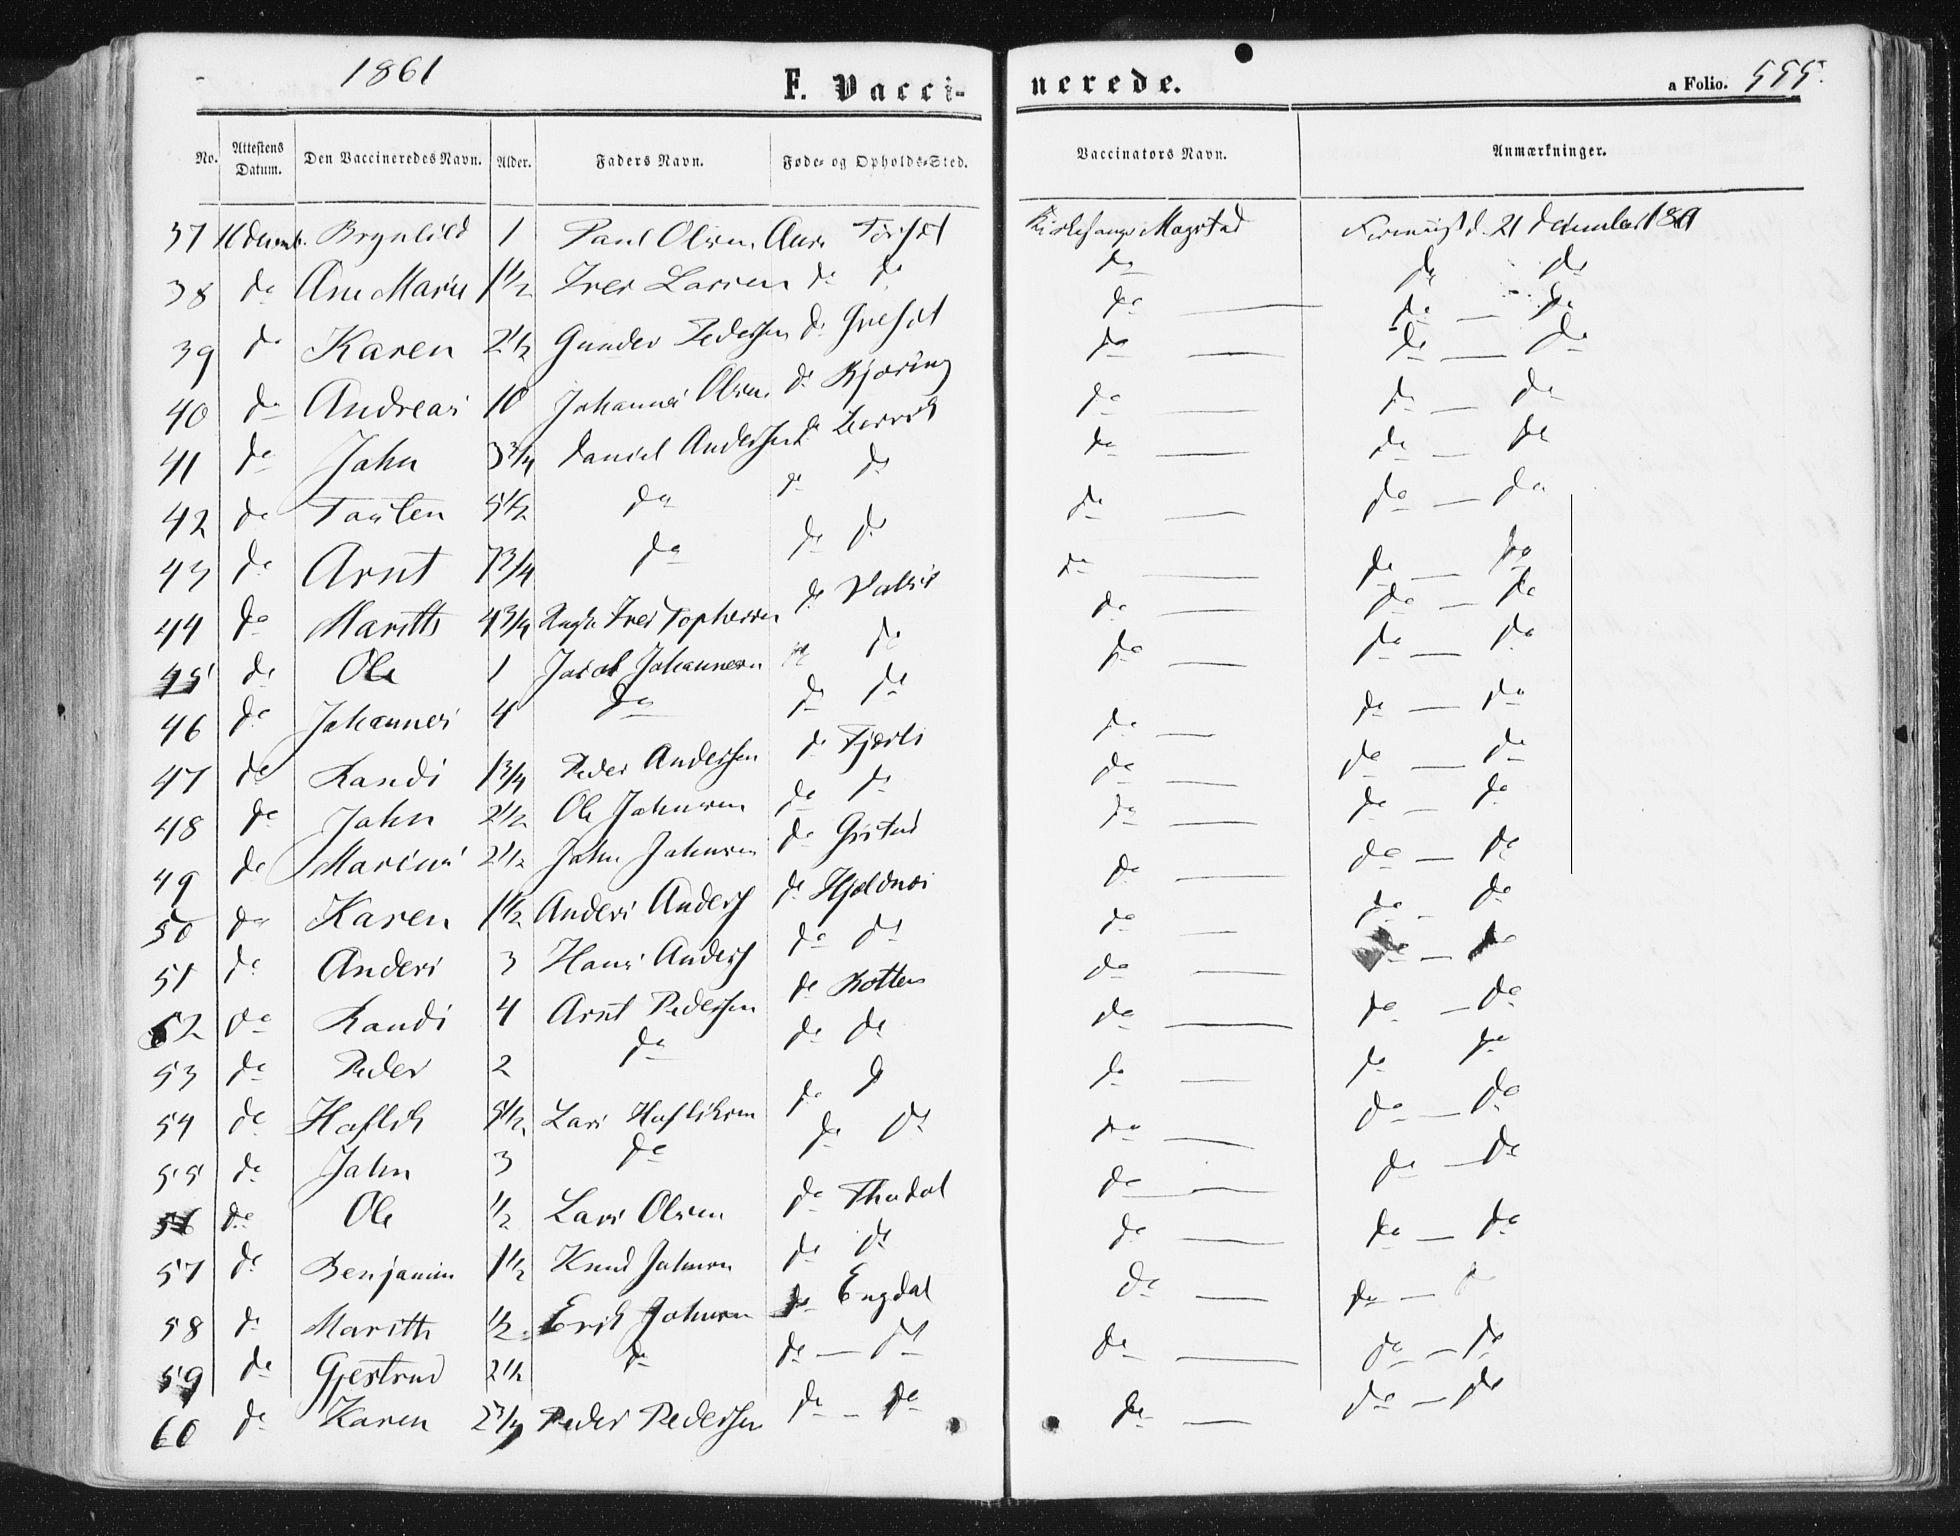 1861
F. Vacci- nerede. a Folio. 555.
No. Attestens Datum. Den Vaccineredes Navn. Alder. Faders Navn. Føde- og Opholds-Sted. Vaccinators Navn. Anmærkninger.
37 Brynhild 1 Paul Olsen Aure Magstad d. 21 December 1861
38 do Ane Marie 1 1/2 Iver Larsen do do do do do
39 do Karen 2 1/2 Gunder Pedersen do do do do
40 do Andreas 10 Johannes Olsen do Kjøring do do do
41 do John 3 3/4 Daniel Andersen do do do do
42 do 5 1/2 do do do do do do
43 do Arnt 7 3/4 do do do do do do
44 do Marith 4 3/4 Iver Tophersen do do do do
45 do Ole 1 Jacob Johannesen do do do do do
46 do Johannes 4 do do do do do do
47 do Randi 1 3/4 Peder Andersen do Fjærli do do do
48 do John 2 1/2 Ole Johnsen do do do do do
49 do Marius 2 1/2 John Johnsen do Gristad do do do
50 do Karen 1 1/2 Anders Anders do Hjeldnæs do do do
51 do Anders 3 Hans Anders do do do do do
52 do Randi 4 Arnt Pedersen do Rotten do do do
53 do Peder 2 do do do do do do
54 do Haflik 5 1/2 Lars Hafliksen do do do do do
55 do John 3 do do do do do do
56 do Ole 1/2 Lars Olsen do Thadal do do do
57 do Benjamin 1 1/2 Knud Johnsen do do do do do
58 do Marith 1/2 Erik Johnsen do Engdal do do do
59 do Gjertrud 2 1/2 do do do do do do
60 do Karen 2 3/4 Peder Pedersen do do do do do